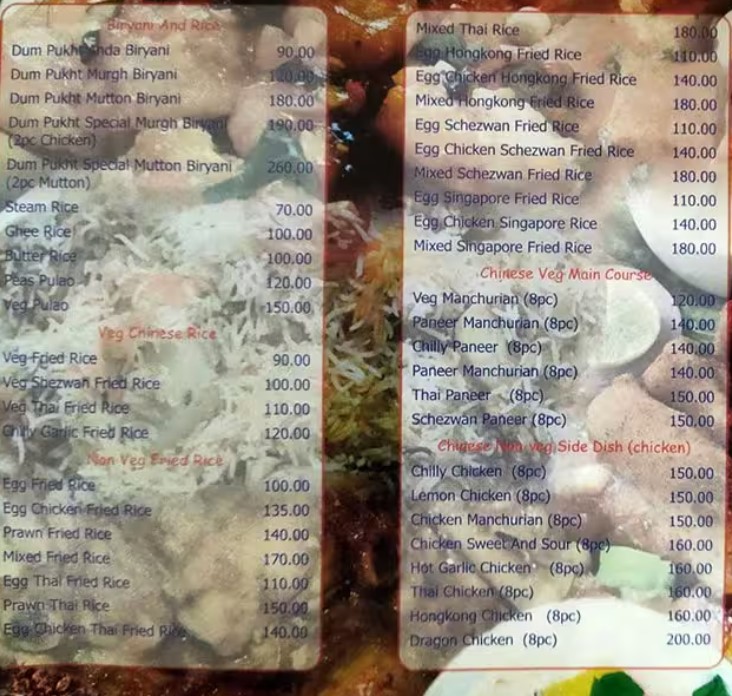 Biryani And Rice
Dum Pukht Anda Biryani 90.00
Dum Pukht Murgh Biryani 120.00
Dum Pukht Mutton Biryani 180.00
Dum Pukht Special Murgh Biryani 190.00
(2pc Chicken)
Dum Pukht Special Mutton Biryani 260.00
(2pc Mutton)
Steam Rice 70.00
Ghee Rice 100.00
Butter Rice 100.00
Peas Pulao 120.00
Veg Pulao 150.00
Veg Chinese Rice
Veg Fried Rice 90.00
Veg Shezwan Fried Rice 100.00
Veg Thai Fried Rice 110.00
Chilly Garlic Fried Rice 120.00
Non Veg Fried Rice
Egg Fried Rice 100.00
Egg Chicken Fried Rice 135.00
Prawn Fried Rice 140.00
Mixed Fried Rice 170.00
Egg Thai Fried Rice 110.00
Prawn Thai Rice 150.00
Egg Chicken Thai Fried Rice 140.00
Mixed Thai Rice 180.00
Egg Hongkong Fried Rice 110.00
Egg Chicken Hongkong Fried Rice 140.00
Mixed Hongkong Fried Rice 180.00
Egg Schezwan Fried Rice 110.00
Egg Chicken Schezwan Fried Rice 140.00
Mixed Schezwan Fried Rice 180.00
Egg Singapore Fried Rice 110.00
Egg Chicken Singapore Rice 140.00
Mixed Singapore Fried Rice 180.00
Chinese Veg Main Course
Veg Manchurian (8pc) 120.00
Paneer Manchurian (8pc) 140.00
Chilly Paneer (8pc) 140.00
Paneer Manchurian (8pc) 140.00
Thai Paneer (8pc) 150.00
Schezwan Paneer (8pc) 150.00
Chinese Non-veg Side Dish (chicken)
Chilly Chicken (8pc) 150.00
Lemon Chicken (8pc) 150.00
Chicken Manchurian (8pc) 150.00
Chicken Sweet And Sour (8pc) 160.00
Hot Garlic Chicken (8pc) 160.00
Thai Chicken (8pc) 160.00
Hongkong Chicken (8pc) 160.00
Dragon Chicken (8pc) 200.00